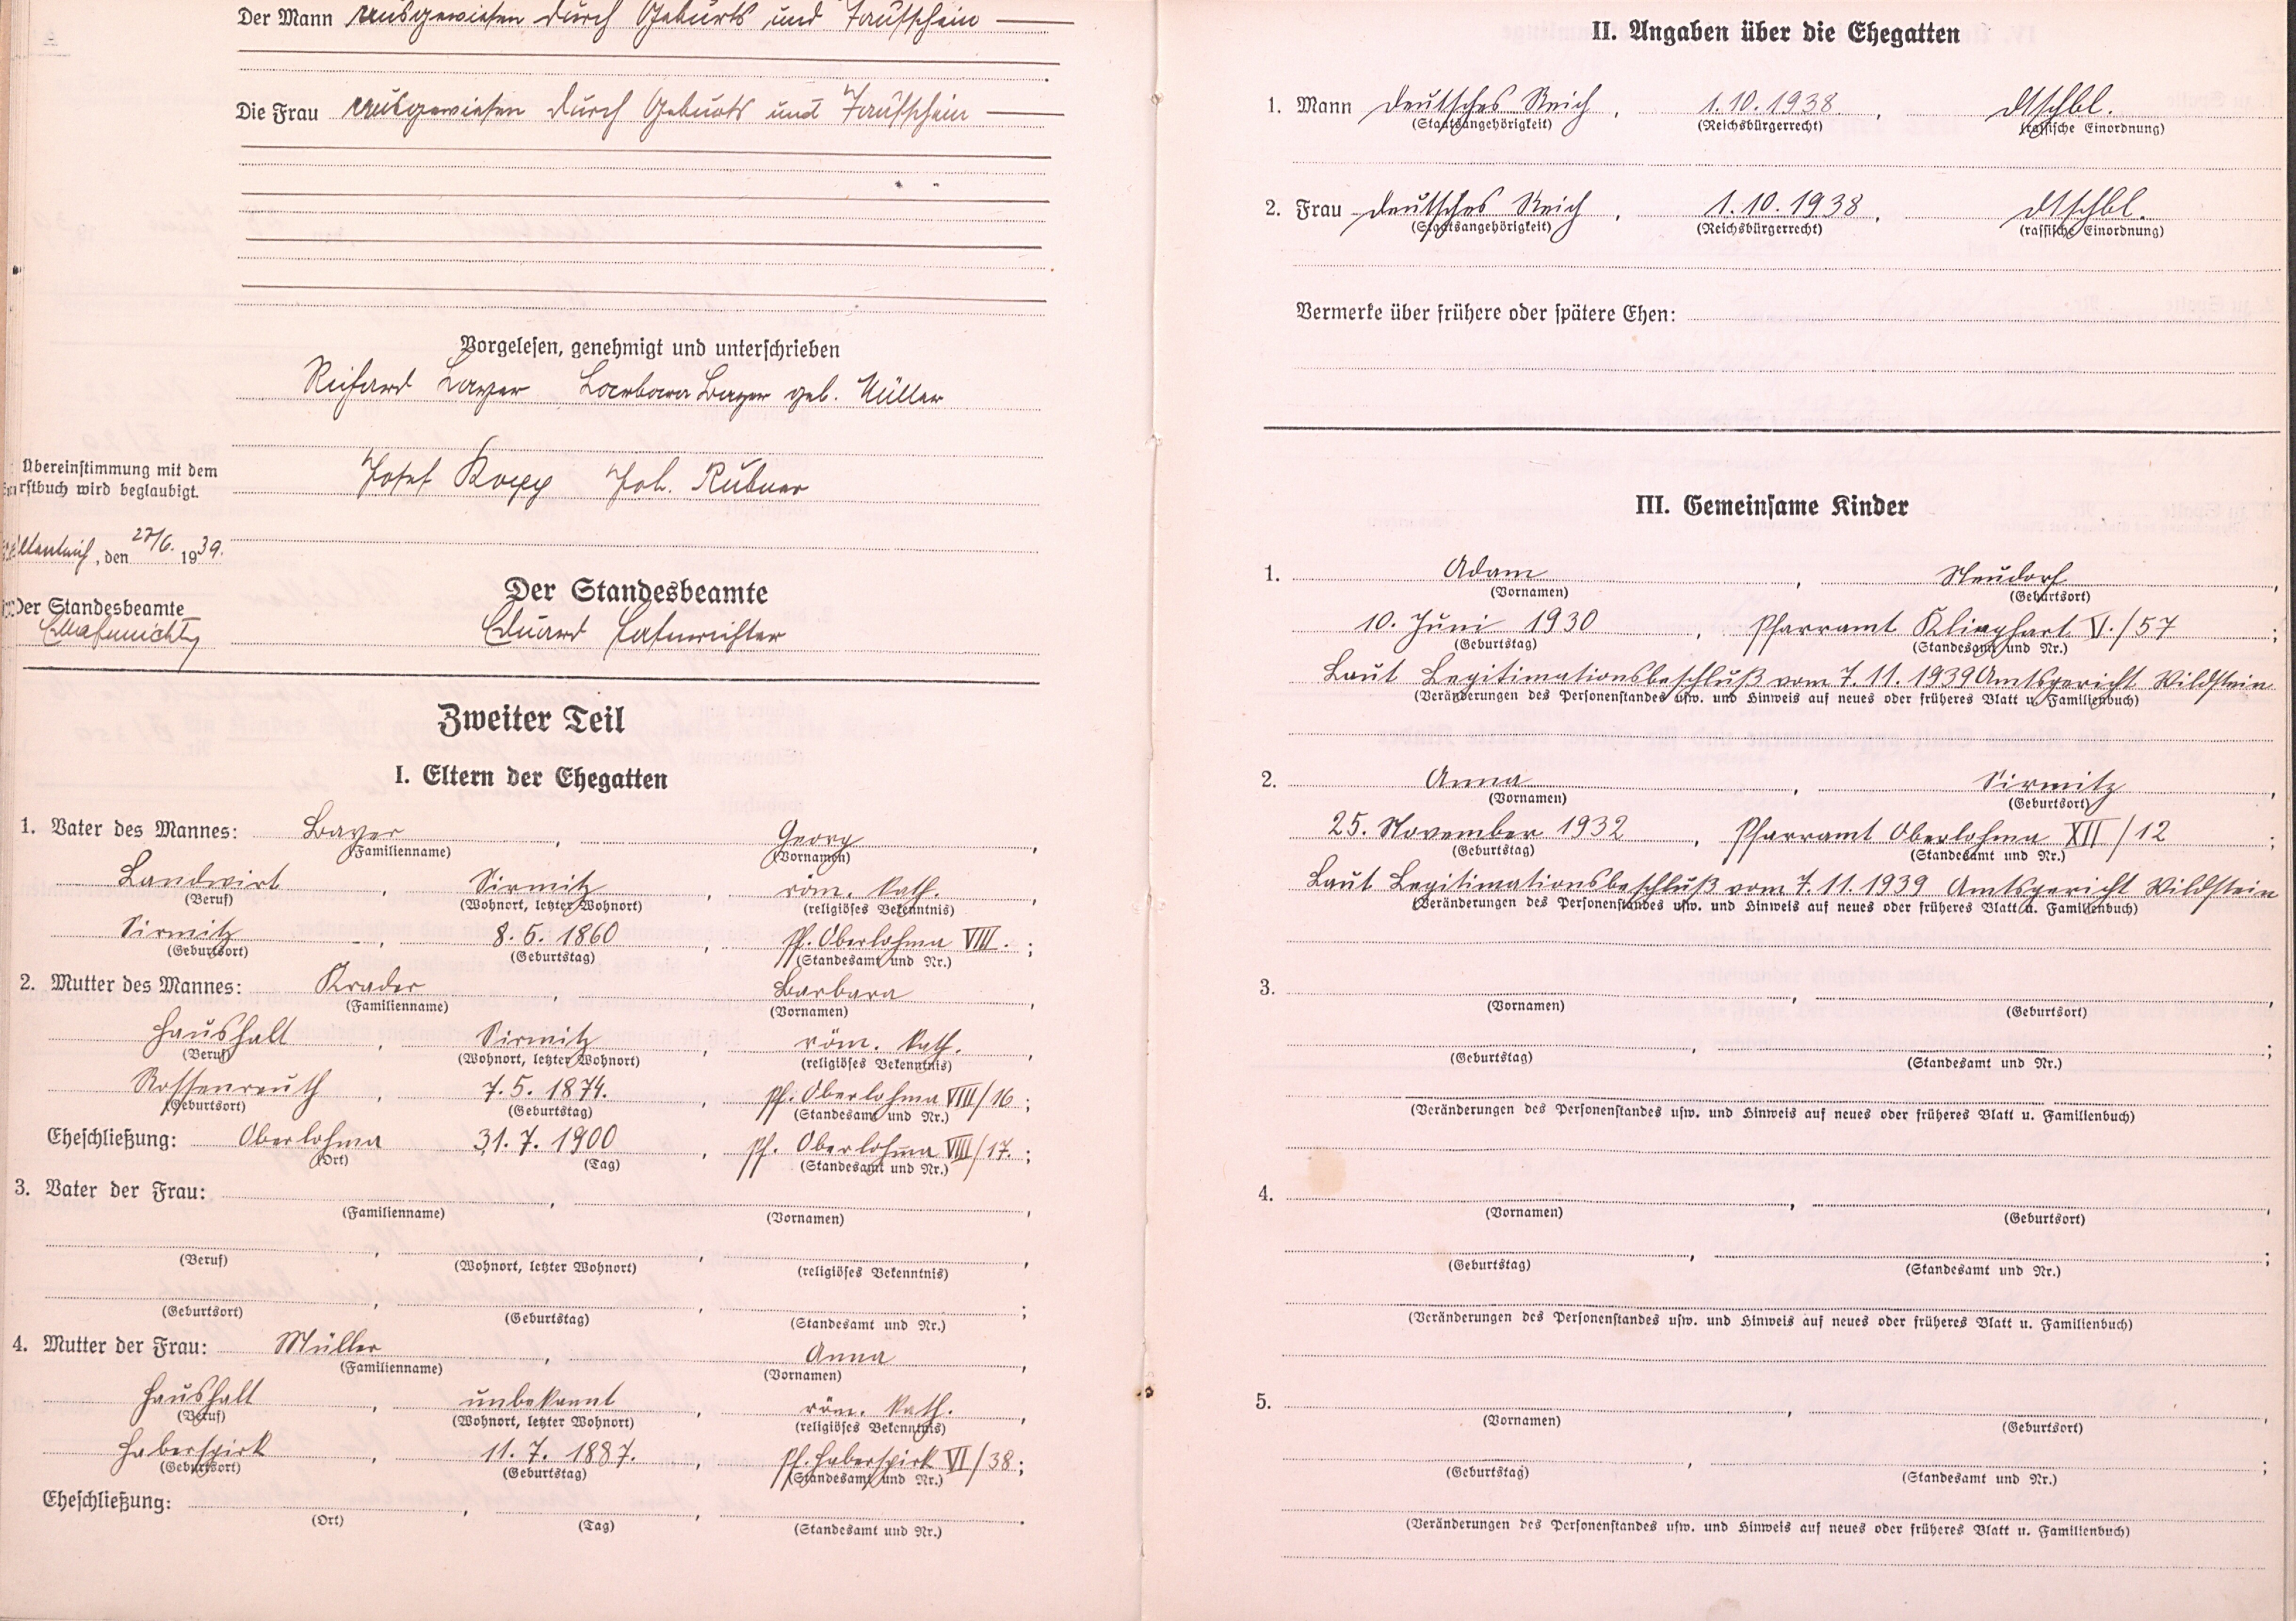 Der Mann ausgewiesen durch Geburts und Taufschein
Die Frau ausgewiesen durch Geburts und Taufschein
Vorgelesen, genehmigt und unterschrieben
Richard Bayer Barbara Bayer geb. Müller
Josef Kopp Joh. Rubner
Übereinstimmung mit dem
rstbuch wird beglaubigt.
, den 27/6. 1939.
Der Standesbeamte
Eduard Hahnrichter
Der Standesbeamte
Zweiter Teil
I. Eltern der Ehegatten
1. Vater des Mannes: Bayer, Georg,
(Familienname) (Vornamen)
Landwirt, Sirmitz, röm. kath.,
(Beruf) (Wohnort, letzter Wohnort) (religiöses Bekenntnis)
Sirmitz, 8. 6. 1860, pf. Oberlohma VIII. ;
(Geburtsort) (Geburtstag) (Standesamt und Nr.)
2. Mutter des Mannes: Krader, Barbara,
(Familienname) (Vornamen)
Haushalt, Sirmitz, röm. kath.,
(Beruf) (Wohnort, letzter Wohnort) (religiöses Bekenntnis)
Rossenreuth, 7. 5. 1874., pf. Oberlohma VIII/16 ;
(Geburtsort) (Geburtstag) (Standesamt und Nr.)
Eheschließung: Oberlohma 31. 7. 1900, pf. Oberlohma VIII/17. ;
(Ort) (Tag) (Standesamt und Nr.)
3. Vater der Frau: , ,
(Familienname) (Vornamen)
(Beruf) (Wohnort, letzter Wohnort) (religiöses Bekenntnis)
(Geburtsort) (Geburtstag) (Standesamt und Nr.)
4. Mutter der Frau: Müller, Anna,
(Familienname) (Vornamen)
Haushalt, unbekannt, röm. kath.,
(Beruf) (Wohnort, letzter Wohnort) (religiöses Bekenntnis)
Haberspirk, 11. 7. 1887., pf. Haberspirk VI/38 ;
(Geburtsort) (Geburtstag) (Standesamt und Nr.)
Eheschließung: , , .
(Ort) (Tag) (Standesamt und Nr.)
II. Angaben über die Ehegatten
1. Mann Deutsches Reich, 1. 10. 1938., dtschbl.
(Staatsangehörigkeit) (Reichsbürgerrecht) (rassische Einordnung)
2. Frau Deutsches Reich, 1. 10. 1938, dtschbl.
(Staatsangehörigkeit) (Reichsbürgerrecht) (rassische Einordnung)
Vermerke über frühere oder spätere Ehen:
III. Gemeinsame Kinder
1. Adam, Neudorf,
(Vornamen) (Geburtsort)
10. Juni 1930, Pfarramt Klinghart V./57 ;
(Geburtstag) (Standesamt und Nr.)
Laut Legitimationsbeschluß vom 7. 11. 1939 Amtsgericht Wildstein
(Veränderungen des Personenstandes usw. und Hinweis auf neues oder früheres Blatt u. Familienbuch)
2. Anna, Sirmitz,
(Vornamen) (Geburtsort)
25. November 1932, Pfarramt Oberlohma XII/12 ;
(Geburtstag) (Standesamt und Nr.)
Laut Legitimationsbeschluß vom 7. 11. 1939 Amtsgericht Wildstein
(Veränderungen des Personenstandes usw. und Hinweis auf neues oder früheres Blatt u. Familienbuch)
3. , ,
(Vornamen) (Geburtsort)
(Geburtstag) (Standesamt und Nr.)
(Veränderungen des Personenstandes usw. und Hinweis auf neues oder früheres Blatt u. Familienbuch)
4. , ,
(Vornamen) (Geburtsort)
(Geburtstag) (Standesamt und Nr.)
(Veränderungen des Personenstandes usw. und Hinweis auf neues oder früheres Blatt u. Familienbuch)
5. , ,
(Vornamen) (Geburtsort)
(Geburtstag) (Standesamt und Nr.)
(Veränderungen des Personenstandes usw. und Hinweis auf neues oder früheres Blatt u. Familienbuch)